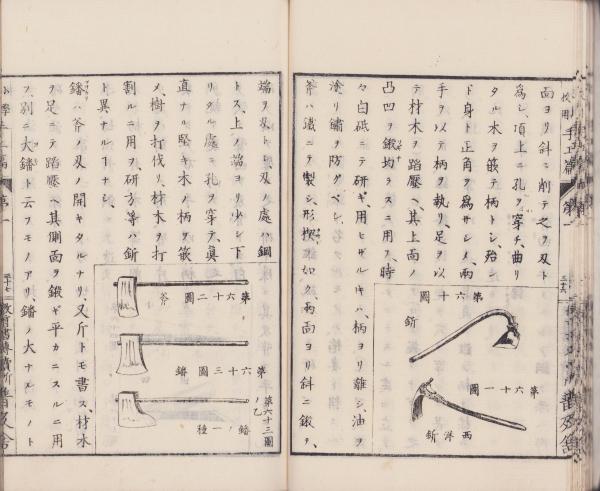 面ヨリ斜ニ削テ之ヲ刄ト
爲シ、頂上ニ孔ヲ穿チ、曲リ
タル木ヲ嵌テ柄トシ、殆ン
ド身ト正角ヲ爲サシメ、兩
手ヲ以テ柄ヲ執リ、足ヲ以
テ材木ヲ蹈壓ヘ、其上面ノ
凸凹ヲ鍛均スニ用ヌ、時
々白砥ニテ研ギ、用ヒザルキハ、柄ヨリ離シ、油ヲ
塗リ鏽ヲ防グベシ、
斧ハ鐵ニテ製シ、形楔ノ如ク、兩面ヨリ斜ニ鍛ヲ、
第六十圖
釿
第六十一圖
西洋釿
端ヲ刄トシ、刄ノ處ハ鋼
トス、上ノ端ヨリ少シ下
リタル處ニ孔ヲ穿テ、眞
直ナル堅キ木ノ柄ヲ嵌
メ、樹ヲ打伐リ、材木ヲ打
割ルニ用ヲ、研方等ハ釿
ト異ナルコナシ、
鐇ハ斧ノ刄ノ開キタルナリ、又斤トモ書ス、材木
ヲ足ニテ蹈壓ヘ、其側面ヲ鍛ギ平カニスルニ用
ヲ、別ニ大鐇ト云フモノアリ、鐇ノ大ナルモノト
第六十二圖 斧
第六十三圖 鐇
第六十三圖ノ乙
鐇ノ一種